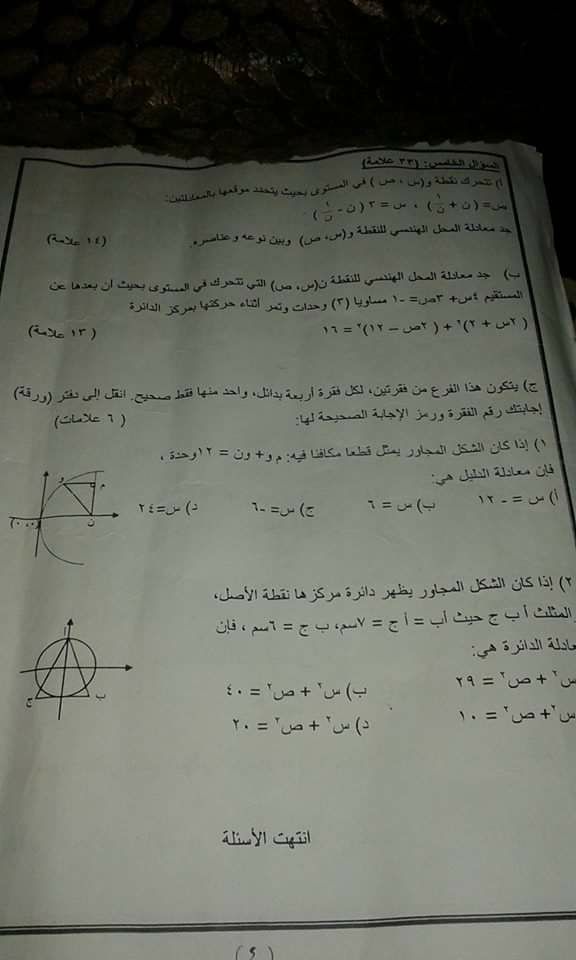 السؤال الخامس: (٣٣ علامة)
أ) تتحرك نقطة و(س ، ص ) في المستوى بحيث يتحدد موقعها بالمعادلتين:
ص= ( ن + ١/ن ) ، س = ٣ ( ن - ١/ن ) .
جد معادلة المحل الهندسي للنقطة و(س، ص) وبين نوعه وعناصره. (١٤ علامة)
ب) جد معادلة المحل الهندسي للنقطة ن(س، ص) التي تتحرك في المستوى بحيث أن بعدها عن
المستقيم ٤س+ ٣ص= -١ مساويا (٣) وحدات وتمر أثناء حركتها بمركز الدائرة
( ٢س + ٢)٢ + ( ٢ص – ١٢)٢ = ١٦ ( ١٣ علامة)
ج) يتكون هذا الفرع من فقرتين، لكل فقرة أربعة بدائل، واحد منها فقط صحيح. انقل إلى دفتر (ورقة)
إجابتك رقم الفقرة ورمز الإجابة الصحيحة لها: ( ٦ علامات)
١) إذا كان الشكل المجاور يمثل قطعا مكافئا فيه: م و+ ون = ١٢وحدة ،
فإن معادلة الدليل هي:
أ) س = - ١٢ ب) س = ٦ ج) س= -٦ د) س=٢٤
و م
ن (٠،٠)
٢) إذا كان الشكل المجاور يظهر دائرة مركزها نقطة الأصل،
المثلث أ ب ج حيث أب = أ ج = ٧سم، ب ج = ٦سم ، فإن
عادلة الدائرة هي:
س٢ + ص٢ = ٢٩ ب) س٢ + ص٢ = ٤٠
س٢+ ص٢ = ١٠ د) س٢ + ص٢ = ٢٠
أ
ب ج
انتهت الأسئلة
(٤)